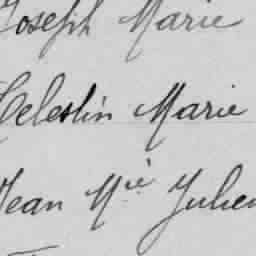 Joseph Marie
Celestin Marie
Jean Mie Julien